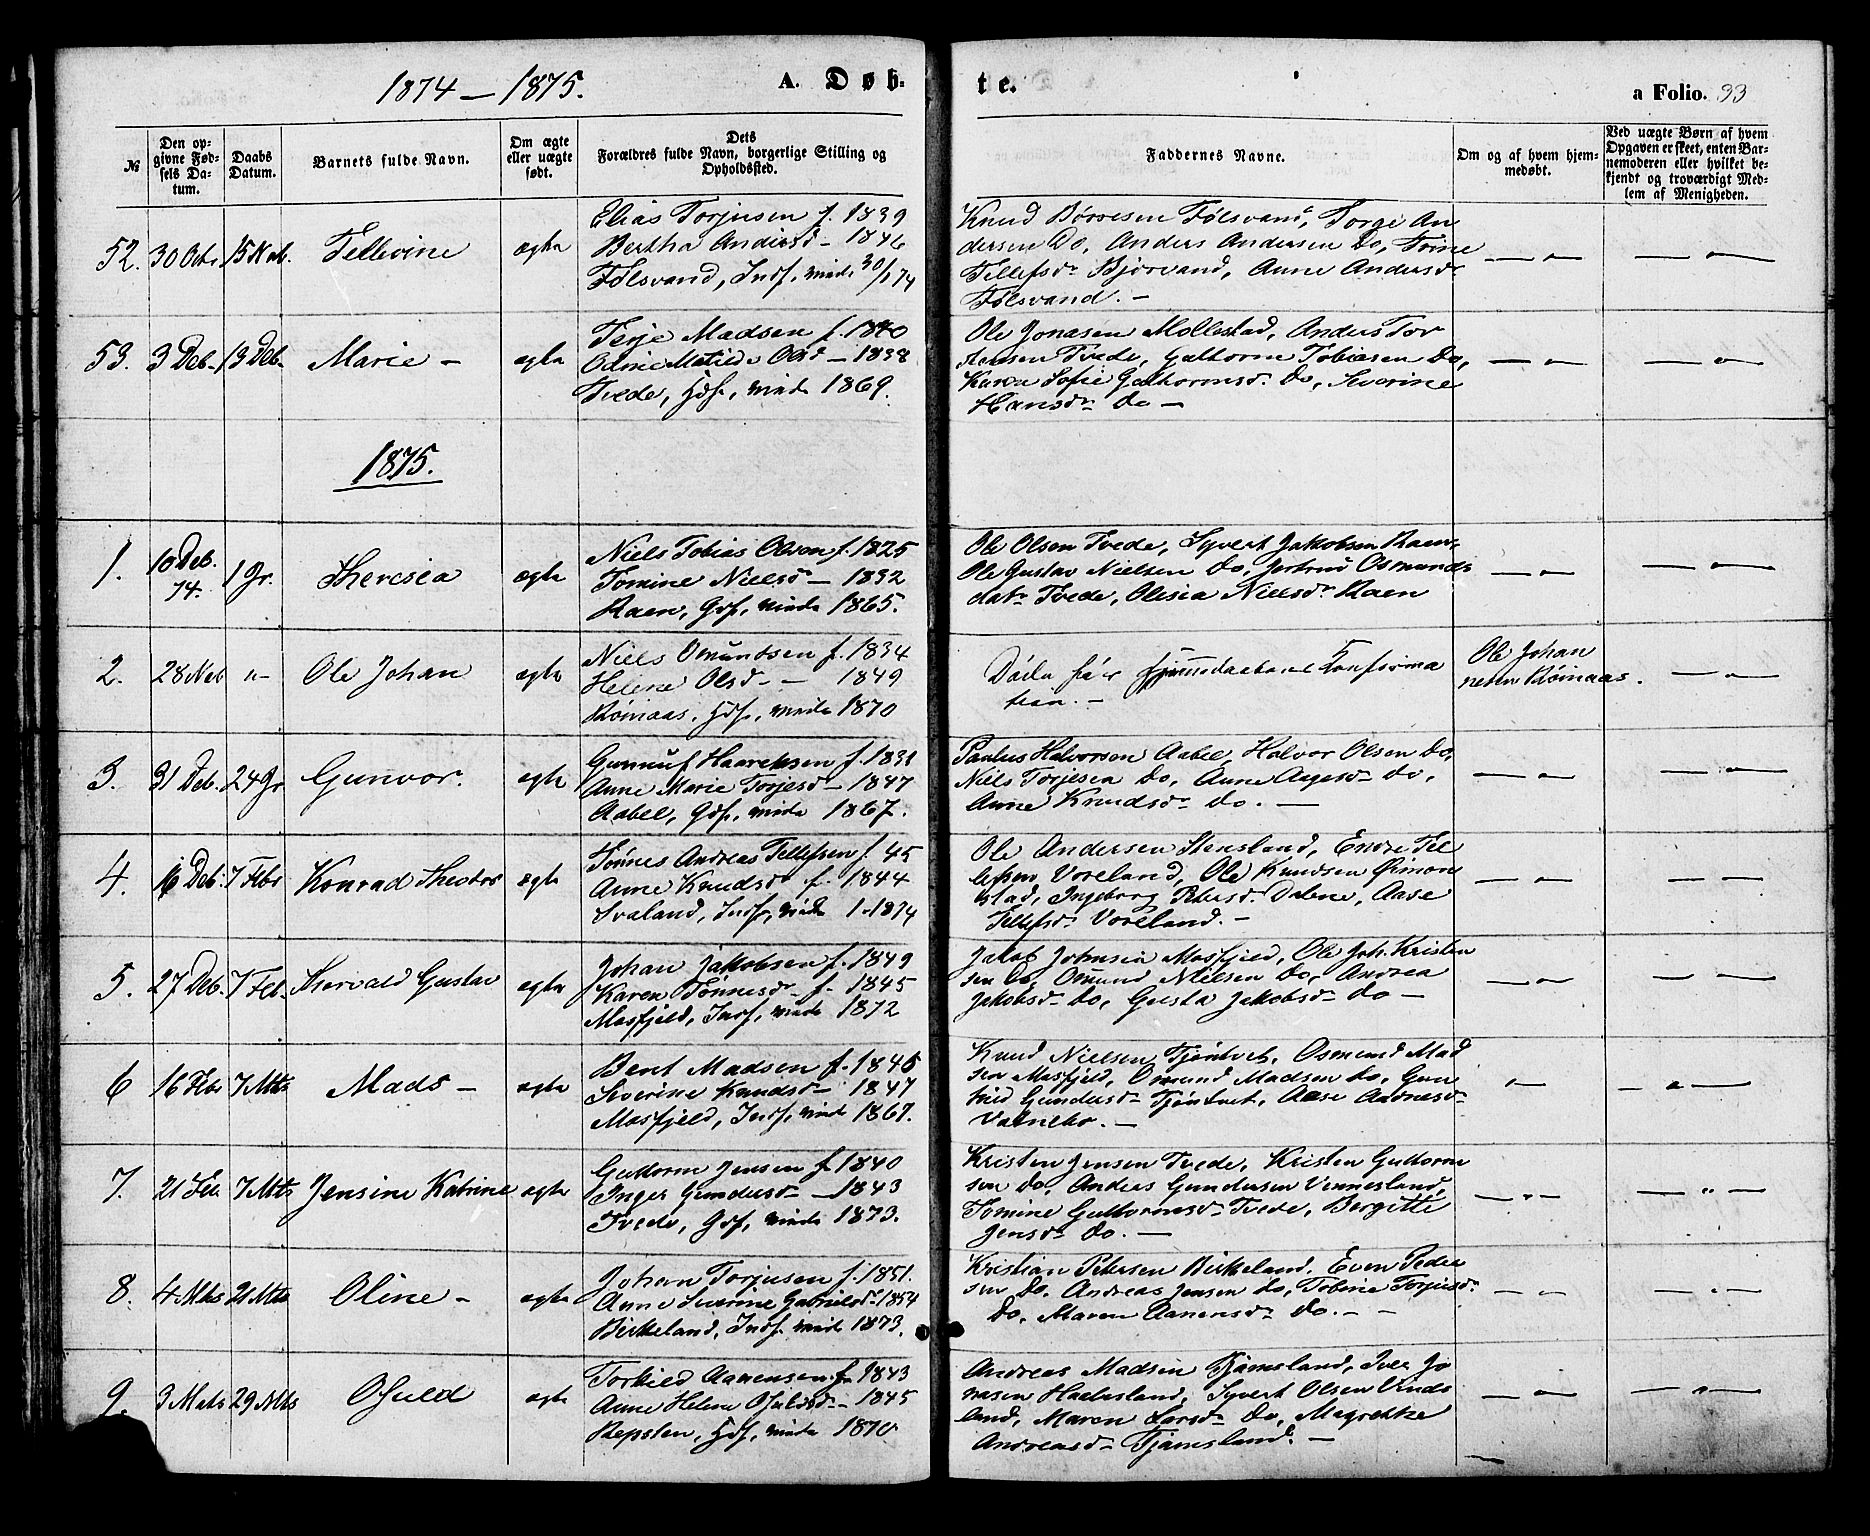 1874 — 1875.
A. Døb-
te.
a Folio. 33
№
Den op-
givne Fød-
sels Da-
tum.
Daabs
Datum.
Barnets fulde Navn.
Om ægte
eller uægte
født.
Dets
Forældres fulde Navn, borgerlige Stilling og
Opholdssted.
Faddernes Navne.
Om og af hvem hjem-
medøbt.
Ved uægte Børn af hvem
Opgaven er skeet, enten Bar-
nemoderen eller hvilket be-
kjendt og troværdigt Med-
lem af Menigheden.
52. 30 Oct. 15 Nov. Tellevine ægte
Elias Torjusen f. 1839
Bertha Andersd — 1846
Følsvand, Inds,
Knud Børresen Følsvand, Torge An
dersen Do, Anders Andersen Do, Trine
Tellefsdr Bjorvand, Anne Andersdr
Følsvand. —
53. 3 Deb. 13 Deb. Marie — ægte
Terje Madsen f. 1840
Olsd — 1838
Tvede, Gdf, vinde 1869.
Ole Jonasen Mollestad, Anders Tor
Tvede, Guttorm Tobiasen Do,
Karen Sofie Guttormsdr Do, Severine
Hansdr Do —
1875.
1. 10 Deb. 74. 1 Jr. Theresea ægte
Niels Tobias Olsen f. 1825
Tomine Nielsd — 1832
Raen, Gdf, vinde 1865.
Ole Olsen Tvede, Syvert Jakobsen Raen,
Ole Gustav Nielsen Do, Osmunds
datr Tvede, Olesea Nielsdr Raen
2. 28 Nob " Ole Johan ægte
Niels Omundsen f. 1834
Helene Olsd — 1849
Røinaas, Gdf, vinde 1870
Døde før hjemmedaabens Konfirma
tion. —
Ole Johan
nesen Røinaas.
3. 31 Deb. 24 Jr Gunvor. ægte
Gunnuf Haareksen f. 1831
Anne Marie Torjesd — 1847
Aabel, Gdf, vinde 1867.
Paulus Halvorsen Aabel, Halvor Olsen Do,
Niels Torjesen Do, Anne Aagesdr Do,
Anne Knudsdr Do. —
4. 16 Deb. 7 Febr Konrad Theodor ægte
Tønnes Andreas Tellefsen f. 45
Anne Knudsdr f. 1844
Svaland, Inds, vinde 1874
Ole Andersen Stensland, Endre Tel
lefsen Voreland, Ole Knudsen Ømon
stad, Ingeborg Petersdr Dalene, Aase
Tellefsdr Voreland. —
5. 27 Deb. 7 Feb. Thorvald Gustav ægte
Johan Jakobsen f. 1849
Karen Tønnesdr f. 1845
Mosfjeld, Inds, vinde 1872
Jakob Johnsen Mosfjeld, Ole Joh. Kristen
sen Do, Omund Nielsen Do, Andrea
Jakobsdr Do, Gusta Jakobsdr Do —
6 16 Febr 7 Mts Mads — ægte
Bent Madsen f. 1845
Severine Knudsd — 1847
Mosfjeld, Inds, vinde 1867.
Knud Nielsen Tjøntvet, Osmund Mad
sen Mosfjeld, Omund Madsen Do, Gun
hild Gundersdr Tjøntvet, Aase
Vatnebo. —
7. 21 Feb. 7 Mts Jensine Katrine ægte
Guttorm Jensen f. 1840
Inger Gundersdr — 1843
Tvede, Gdf, vinde 1873.
Kristen Jensen Tvede, Kristen Guttorm
sen Do, Anders Gundersen Vennesland,
Tomine Guttormsdr Tvede, Bergitte
Jensdr Do. —
8. 4 Mts 21 Mts Oline — ægte
Johan Torjusen f. 1851.
Anne Severine Gabrielsdr 1854
Birkeland, Inds. vinde 1873.
Kristian Petersen Birkeland, Even Peder
sen Do, Andreas Jensen Do, Tobine Torjusdr
Do, Maren Aanensdr Do. —
9. 3 Mats 29 Mts Osuld ægte
Torkild Aanensen f. 1843
Anne Helene Osuldsd — 1845
Repsten, Gdf, vinde 1870
Andreas Madsen Tjomsland, Iver Jo
nasen Haabesland, Syvert Olsen Vinds
land, Maren Larsdr Do, Magrethe
Andreasdr Tjomsland. —